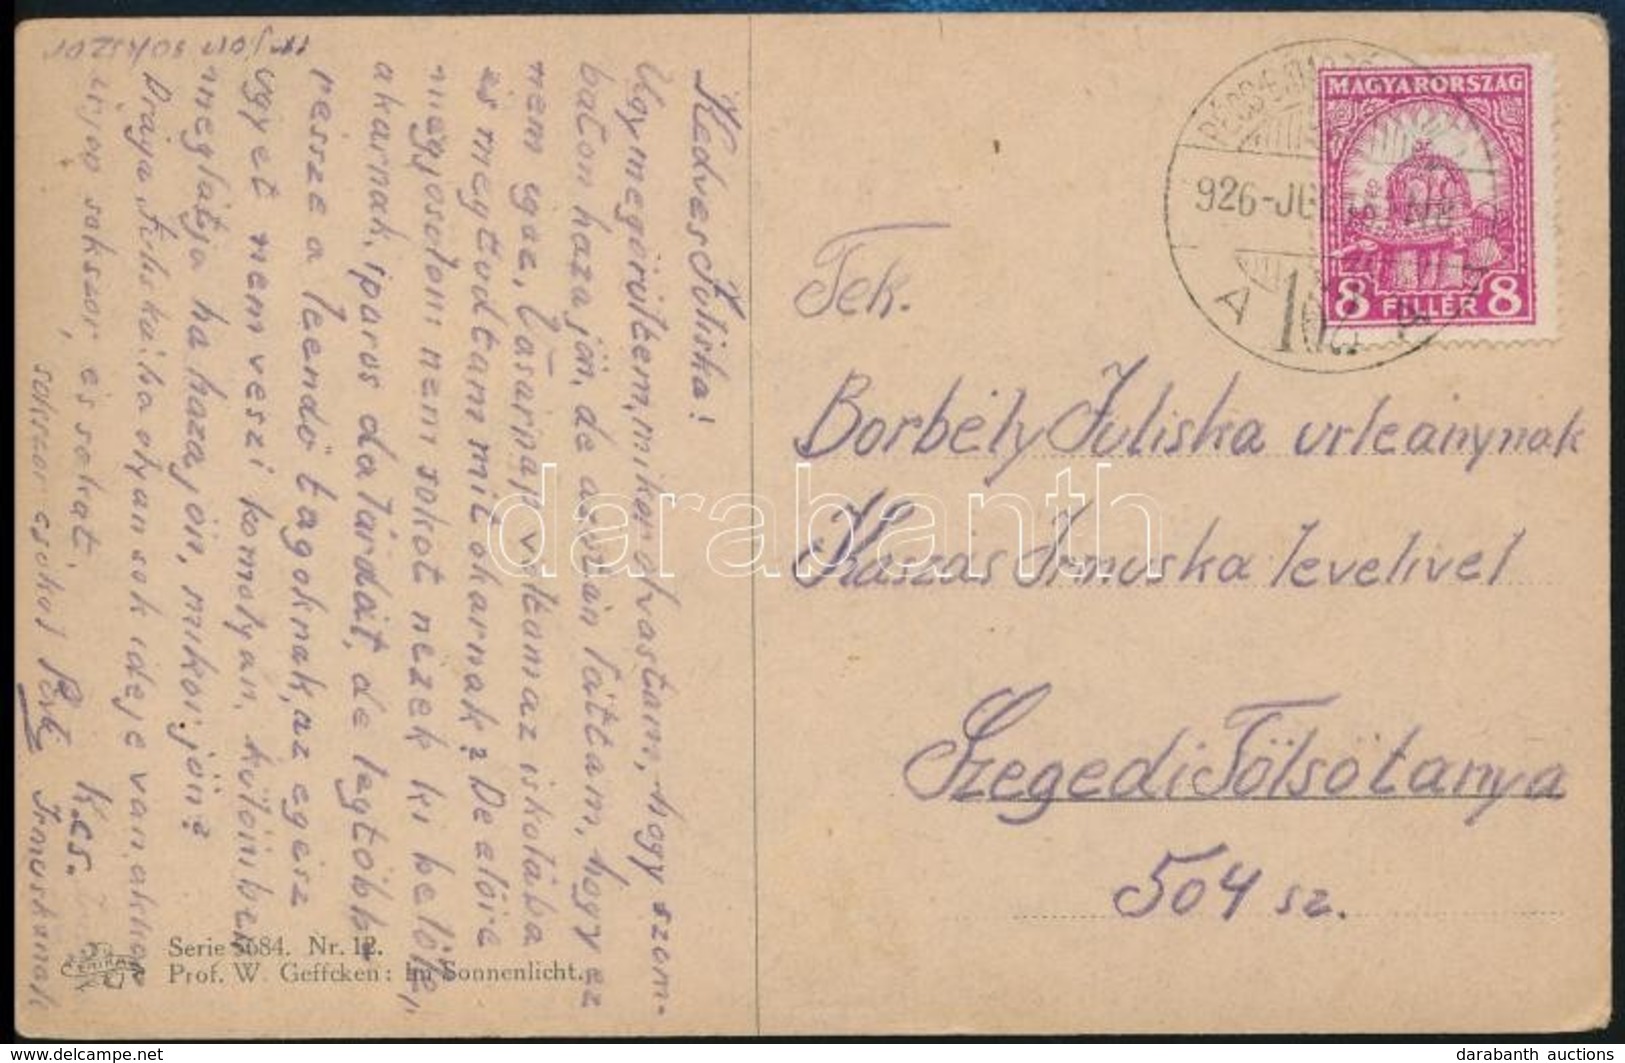 Kedves Juliska!
Ugy megörültem, mikor olvastam, hogy szom-
baton haza jön, de aztán láttam, hogy ez
nem igaz, Vasárnap voltam az iskolába
es megtudtam mit akarnak? De előre
megjósolom nem sokat nézek ki belőle,
akarnak, iparos dalárdát, de legtöbb
része a leendő tagoknak, az egész
ugyet nem veszi komolyan, különben
meglátja ha haza jön, mikor jön?
Drága Juliska, ha olyan sok ideje van akkor
irjon sokszor, és sokat.
K. cs.
sokszor csókol
Irmuskának
irjon sokszor
Serie 5684. Nr. 12.
Prof. W. Geffcken: Im Sonnenlicht.
MAGYARORSZÁG
8 FILLÉR 8
926-JU
A
Tek.
Borbély Juliska urleánynak
Kaszás Irmuska levelivel
Szegedi Fölsötanya
504 sz.
darabanth
darabanth auctions